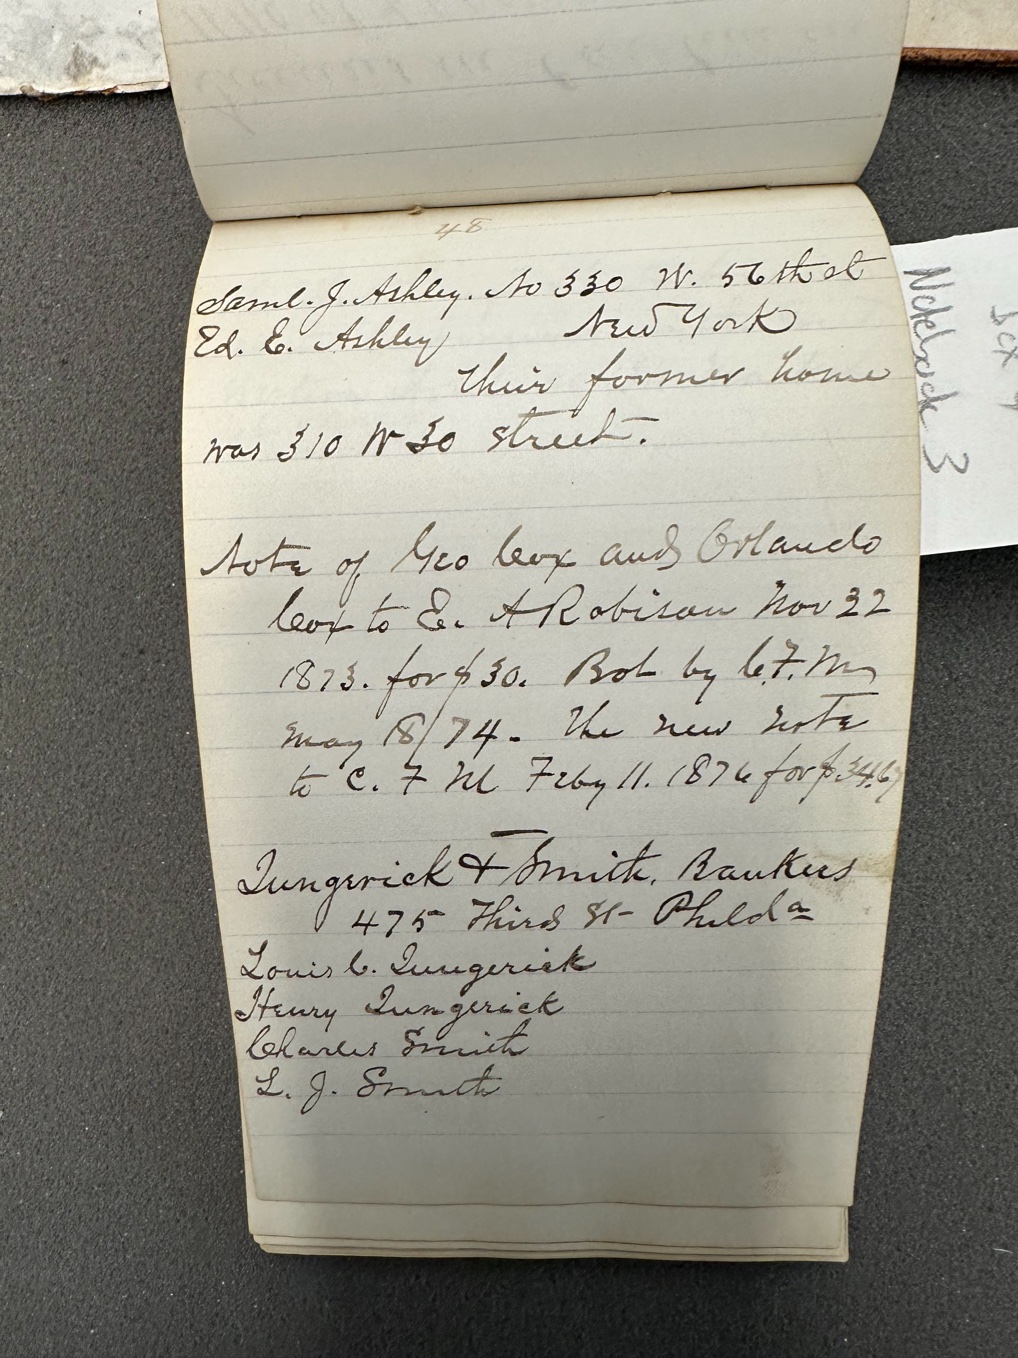 48
Saml. J. Ashley. No 330 W. 56th st
Ed. E. Ashley New York
their former home
was 310 W 30 street.
Note of Geo Cox and Orlando
Cox to E. A Robison Nov 22
1873. for $30. Bot by C.F.M,
May 18/74. The new note
to C. F M Feby 11. 1876 for $34.67
Jungerick & Smith, Bankers
475 Third St Philda
Louis C. Jungerick
Henry Jungerick
Charles Smith
L. J. Smith
Notebook 3